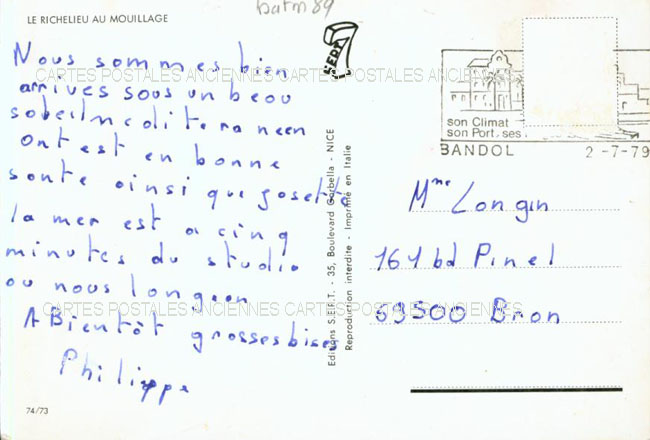 LE RICHELIEU AU MOUILLAGE
batm 89
Nous sommes bien
arrives sous un beau
soleil mediteraneen
ont est en bonne
sante ainsi que josette
la mer est a cinq
minutes du studio
ou nous longeon
A Bientôt grosses bises
Philippe
74/73
S.E.P.T.
Editions S.E.P.T. - 35, Boulevard Gorbella - NICE
Reproduction interdite - Imprimé en Italie
son Climat
son Port, ses
BANDOL 2-7-79
Mme Longin
161 bd Pinel
69500 Bron
CARTES POSTALES ANCIENNES CARTES POSTALES ANCIENNES CARTES POSTALES ANCIENNES
CARTES POSTALES ANCIENNES CARTES POSTALES ANCIENNES